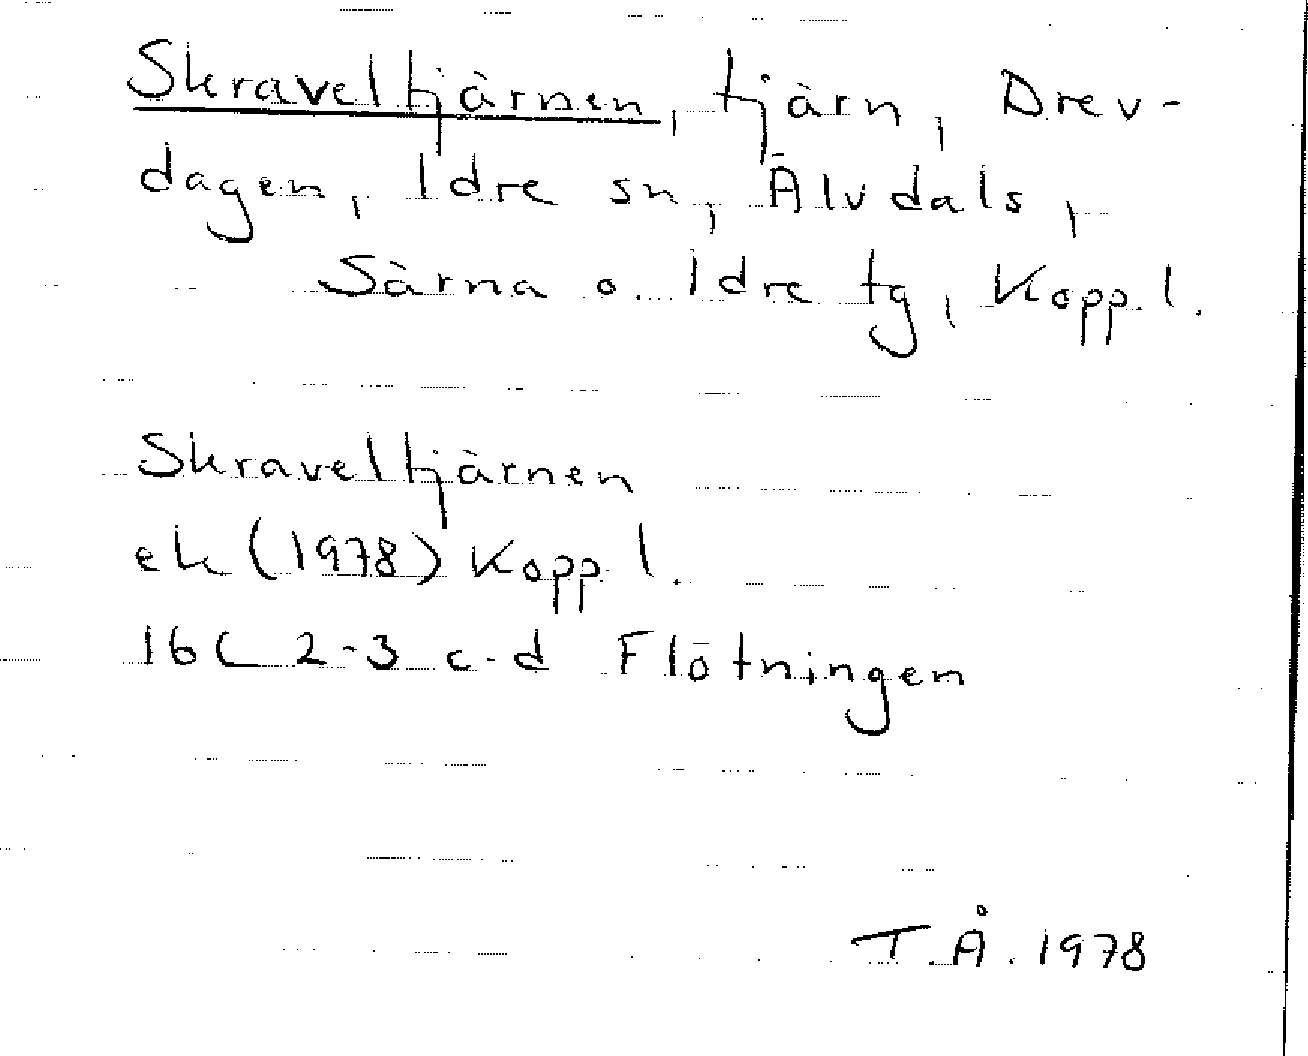 Skraveltjärnen, tjärn, Drev-
dagen, Idre sn, Älvdals,
Särna o. Idre tg, Kopp. l.
Skraveltjärnen
ek (1978) Kopp l.
16C 2-3 c-d Flötningen
T.Å. 1978